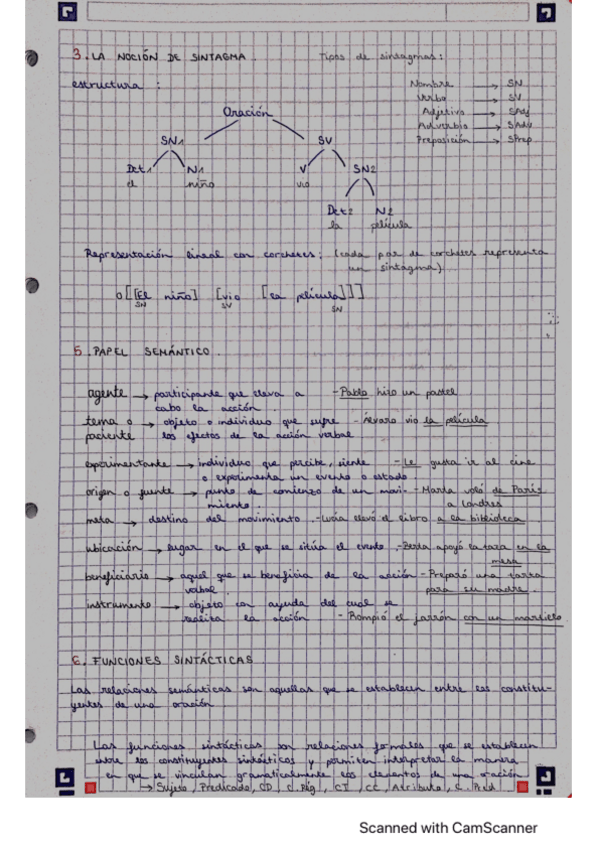 3. LA NOCIÓN DE SINTAGMA. Tipos de sintagmas:
estructura :
Nombre → SN
Verbo → SV
Adjetivo → SAdj
Adverbio → SAdv
Preposición → SPrep
Oración
SN1 SV
Det1 N1 V SN2
el niño vio
Det2 N2
la película
Representación lineal con corchetes: (cada par de corchetes representa
un sintagma)
O[[El niño] [vio [la película]]]
SN SV SN
5. PAPEL SEMÁNTICO.
agente → participante que lleva a - Pablo hizo un pastel
cabo la acción.
tema o → objeto o individuo que sufre - Álvaro vio la película
paciente los efectos de la acción verbal
experimentante → individuo que percibe, siente - Le gusta ir al cine
o experimenta un evento o estado.
origen o fuente → punto de comienzo de un movi- - Marta voló de París
miento. a Londres
meta → destino del movimiento. - Lucía llevó el libro a la biblioteca
ubicación → lugar en el que se sitúa el evento - Berta apoyó la taza en la
mesa
beneficiario → aquel que se beneficia de la acción - Preparó una tarta
verbal. para su madre.
instrumento → objeto con ayuda del cual se
realiza la acción - Rompió el jarrón con un martillo
6. FUNCIONES SINTÁCTICAS
Las relaciones semánticas son aquellas que se establecen entre los constitu-
yentes de una oración
Las funciones sintácticas son relaciones formales que se establecen
entre los constituyentes sintácticos y permiten interpretar la manera
en que se vinculan gramaticalmente los elementos de una oración
→ Sujeto, Predicado, CD, C.Rég, CI, CC, Atributo, C.
Scanned with CamScanner